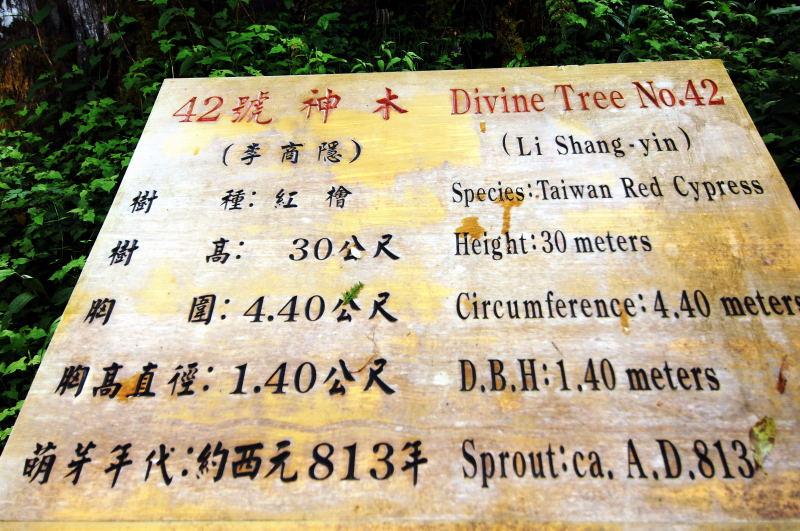 42號 神 木 Divine Tree No.42
(李商隱) (Li Shang-yin)
樹 種: 紅 檜 Species:Taiwan Red Cypress
樹 高: 30公尺 Height:30 meters
胸 圍: 4.40公尺 Circumference:4.40 meters
胸高直徑: 1.40公尺 D.B.H:1.40 meters
萌芽年代:約西元813年 Sprout:ca. A.D.813